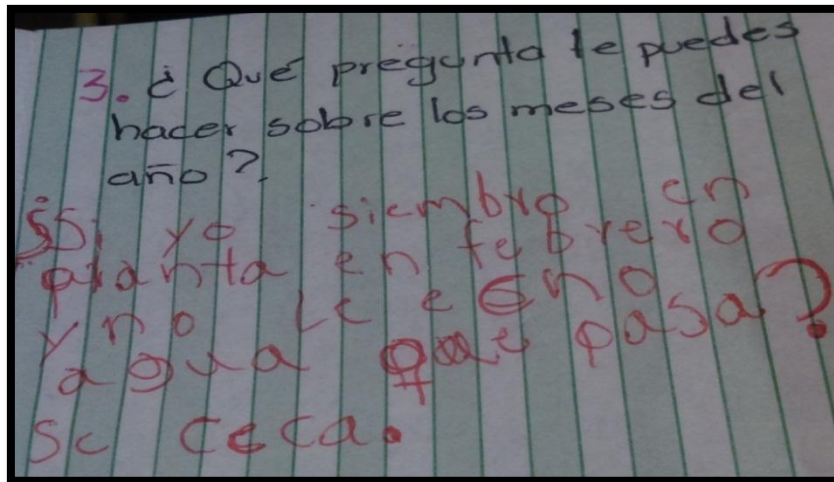 3. ¿Qué pregunta le puedes
hacer sobre los meses del
año?
¿Si yo siembro en
planta en febrero
y no le eeno
agua que pasa?
se ceca.